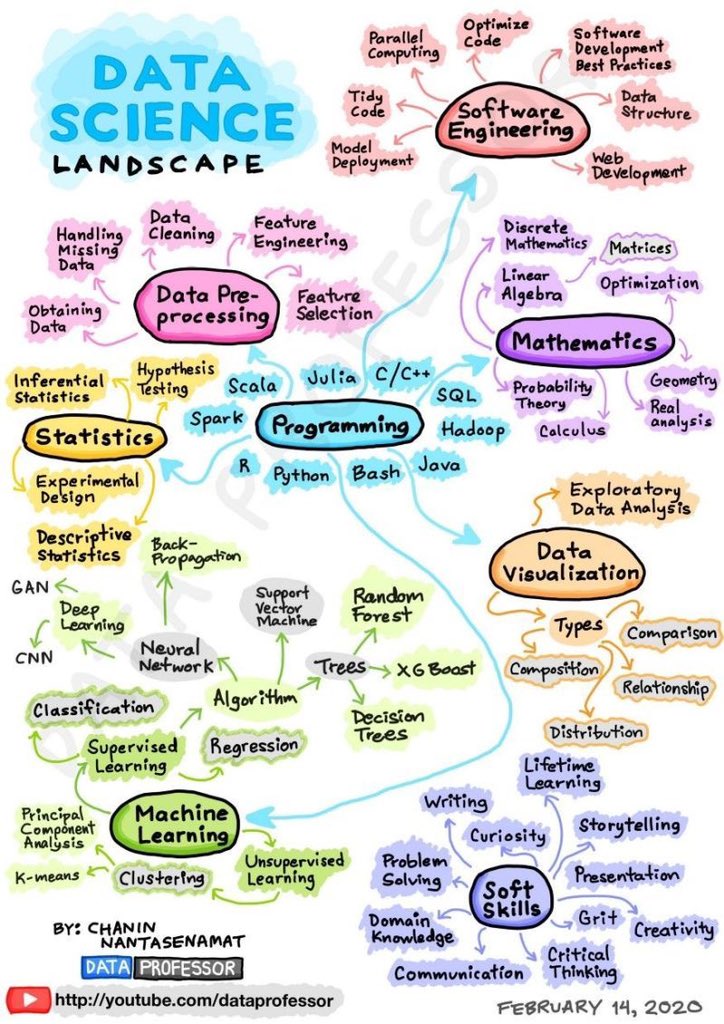 DATA
SCIENCE
LANDSCAPE
Parallel
Computing
Optimize
Code
Software
Development
Best Practices
Tidy
Code
Software
Engineering
Data
Structure
Model
Deployment
Web
Development
Handling
Missing
Data
Data
Cleaning
Feature
Engineering
Obtaining
Data
Data Pre-
processing
Feature
Selection
Discrete
Mathematics
Matrices
Linear
Algebra
Optimization
Mathematics
Probability
Theory
Geometry
Calculus
Real
analysis
Inferential
Statistics
Hypothesis
Testing
Statistics
Experimental
Design
Descriptive
Statistics
Scala
Julia
C/C++
SQL
Spark
Programming
Hadoop
R
Python
Bash
Java
Exploratory
Data Analysis
Data
Visualization
Types
Comparison
Composition
Relationship
Distribution
Back-
Propagation
GAN
Deep
Learning
CNN
Neural
Network
Support
Vector
Machine
Random
Forest
Trees
XGBoost
Algorithm
Decision
Trees
Classification
Supervised
Learning
Regression
Machine
Learning
Principal
Component
Analysis
K-means
Clustering
Unsupervised
Learning
Lifetime
Learning
Writing
Curiosity
Storytelling
Problem
Solving
Soft
Skills
Presentation
Domain
Knowledge
Grit
Creativity
Communication
Critical
Thinking
BY: CHANIN
NANTASENAMAT
DATA PROFESSOR
http://youtube.com/dataprofessor
FEBRUARY 14, 2020
DATA PROFESSOR